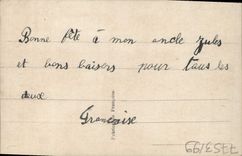 Bonne fête à mon oncle Jules
et bons baisers pour tous les
deux
Françoise